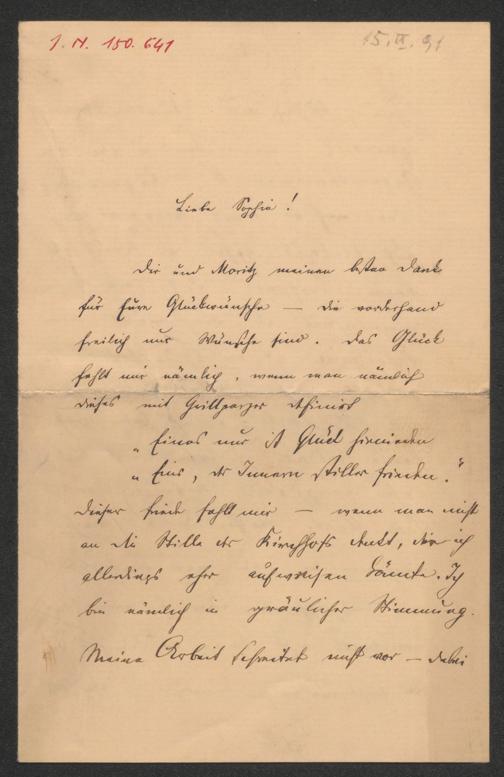 J. N. 150.641
15. IX. 91
Liebe Sophie!
Dir und Moritz meinen besten Dank
für Eure Glückwünsche — die vorderhand
freilich nur Wünsche sind. Das Glück
fehlt mir nämlich, wenn man nämlich
dieses mit Grillparzer definirt
"Eines nur ist Glück hienieden
"Eins, des Innern stiller Frieden."
Dieser Friede fehlt mir — wenn man nicht
an die Stille des Kirchhofs denkt, die ich
allerdings eher aufweisen könnte. Ich
bin nämlich in gräulicher Stimmung.
Meine Arbeit schreitet nicht vor — dabei